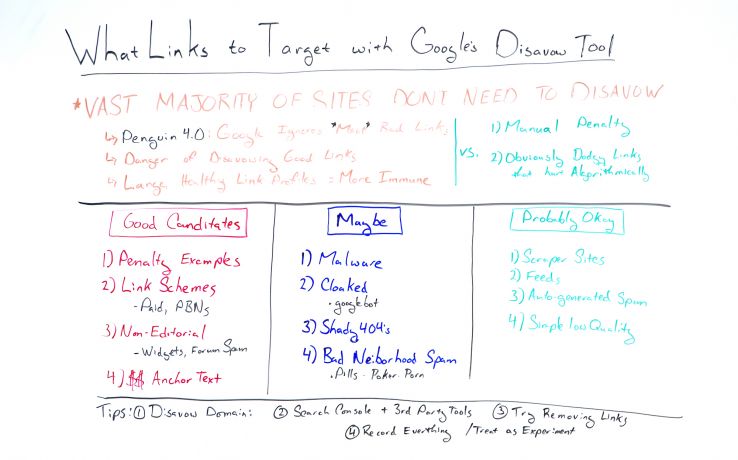 What Links to Target with Google's Disavow Tool
*VAST MAJORITY OF SITES DONT NEED TO DISAVOW
↳ Penguin 4.0: Google Ignores "Most" Bad Links
↳ Danger of Disavowing Good Links
↳ Large, Healthy Link Profiles = More Immune
vs.
1) Manual Penalty
2) Obviously Dodgy Links
that hurt Algorithmically
Good Canditates
1) Penalty Examples
2) Link Schemes
- Paid, PBNs
3) Non-Editorial
- Widgets, Forum Spam
4) $$$ Anchor Text
Maybe
1) Malware
2) Cloaked
• googlebot
3) Shady 404's
4) Bad Neiborhood Spam
• Pills - Poker - Porn
Probably Okay
1) Scraper Sites
2) Feeds
3) Auto-generated Spam
4) Simple low Quality
Tips: ① Disavow Domain: ② Search Console + 3rd Party Tools ③ Try Removing Links
④ Record Everthing / Treat as Experiment